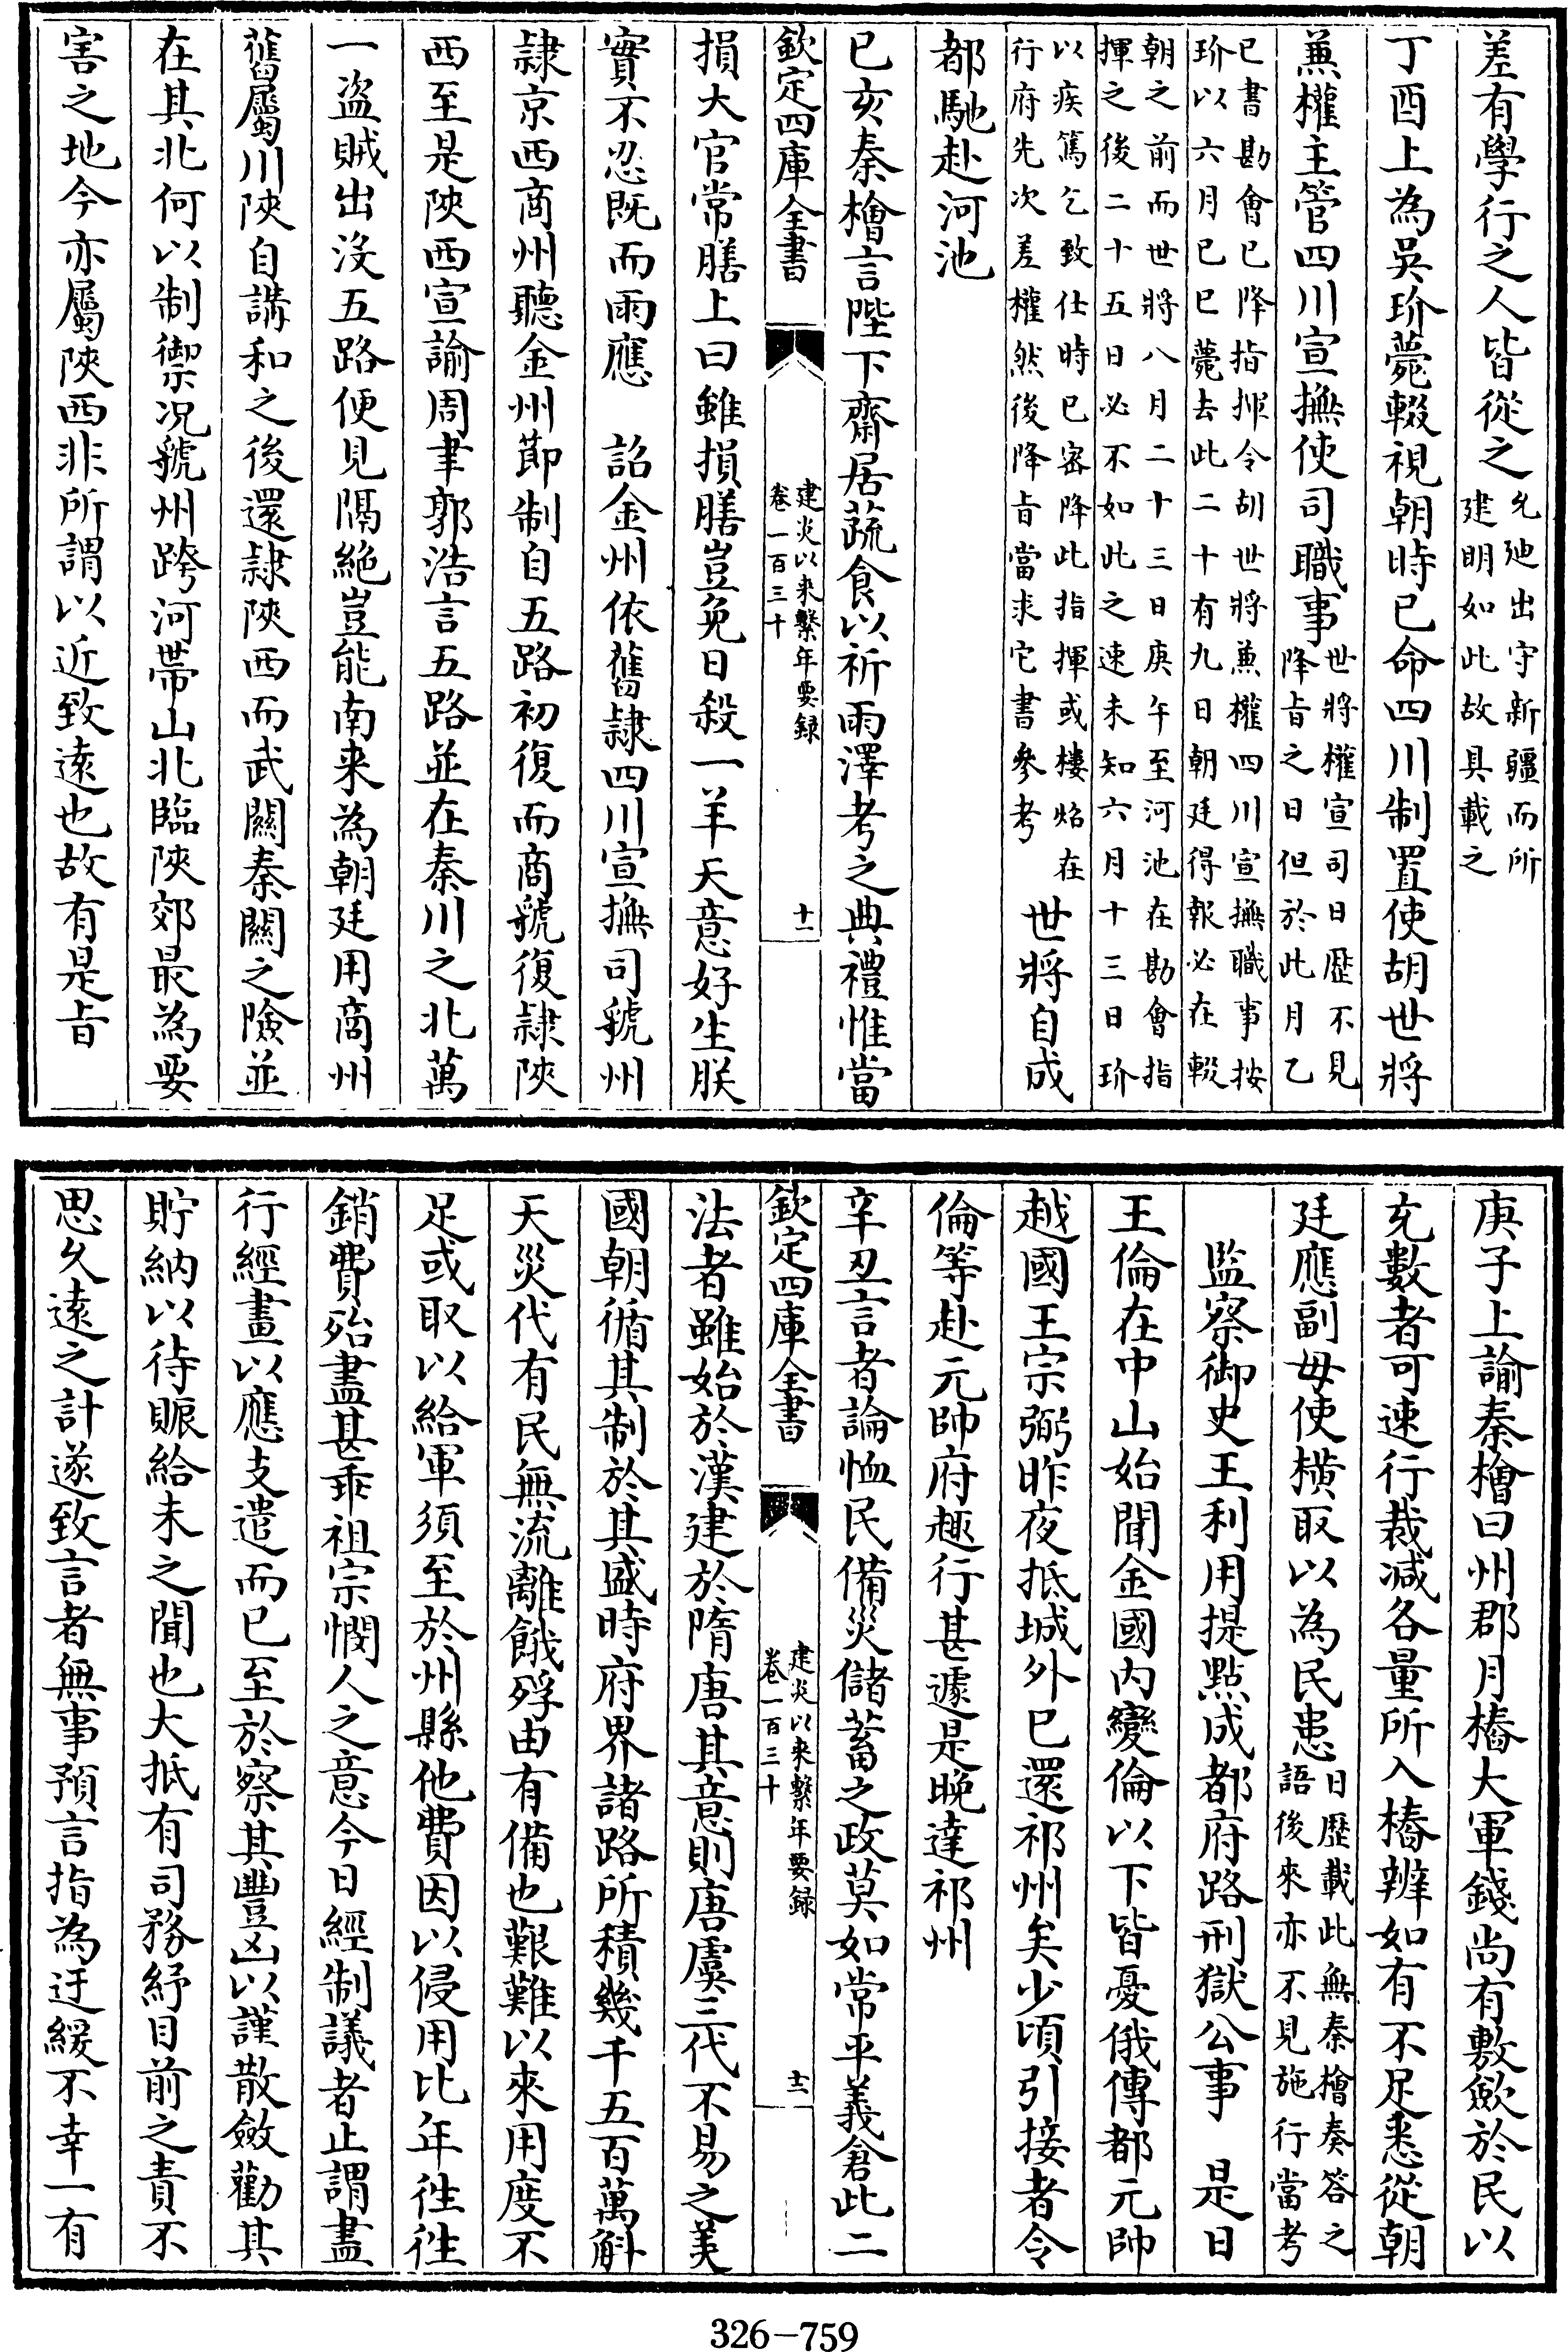 差有學行之人皆從之允迪出守新疆而所
建明如此故具載之
丁酉上為吳玠薨輟視朝時已命四川制置使胡世將
兼權主管四川宣撫使司職事世將權宣司日歷不見
降旨之日但於此月乙
巳書勘會已降指揮令胡世將兼權四川宣撫職事按
玠以六月己巳薨去此二十有九日朝廷得報必在輟
朝之前而世將八月二十三日庚午至河池在勘會指
揮之後二十五日必不如此之速未知六月十三日玠
以疾篤乞致仕時已密降此指揮或樓炤在
行府先次差權然後降旨當求它書參考
世將自成
都馳赴河池
已亥秦檜言陛下齋居蔬食以祈雨澤考之典禮惟當
欽定四庫全書
建炎以來繫年要録
卷一百三十
十一
損大官常膳上曰雖損膳豈免日殺一羊天意好生朕
實不忍既而雨應 詔金州依舊隷四川宣撫司虢州
隷京西商州聽金州節制自五路初復而商虢復隷陜
西至是陜西宣諭周聿郭浩言五路並在秦川之北萬
一盜賊出沒五路便見隔絶豈能南來為朝廷用商州
舊屬川陜自講和之後還隷陜西而武關秦關之險並
在其北何以制禦况虢州跨河帶山北臨陜郊最為要
害之地今亦屬陜西非所謂以近致遠也故有是旨
庚子上諭秦檜曰州郡月樁大軍錢尚有敷歛於民以
充數者可速行裁減各量所入樁辦如有不足悉從朝
廷應副毋使橫取以為民患日歷載此無秦檜奏答之
語後來亦不見施行當考
監察御史王利用提點成都府路刑獄公事 是日
王倫在中山始聞金國內變倫以下皆憂俄傳都元帥
越國王宗弼昨夜抵城外已還祁州矣少頃引接者令
倫等赴元帥府趣行甚遽是晚達祁州
辛丑言者論恤民備災儲蓄之政莫如常平義倉此二
欽定四庫全書
建炎以來繫年要録
卷一百三十
十二
法者雖始於漢建於隋唐其意則唐虞三代不易之美
國朝循其制於其盛時府界諸路所積幾千五百萬斛
天災代有民無流離餓殍由有備也艱難以來用度不
足或取以給軍須至於州縣他費因以侵用比年徃徃
銷費殆盡甚乖祖宗憫人之意今日經制議者止謂盡
行經畫以應支遣而已至於察其豐凶以謹散斂勸其
貯納以待賑給未之聞也大抵有司務紓目前之責不
思久遠之計遂致言者無事預言指為迂緩不幸一有
326—759